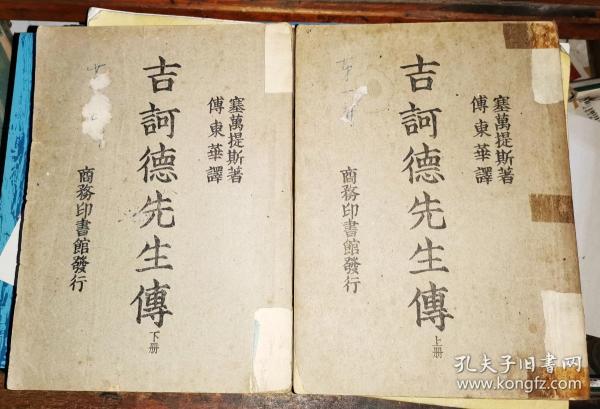 吉訶德先生傳
下册
塞萬提斯著
傅東華譯
商務印書館發行
吉訶德先生傳
上册
塞萬提斯著
傅東華譯
商務印書館發行
孔夫子旧书网
www.kongfz.com